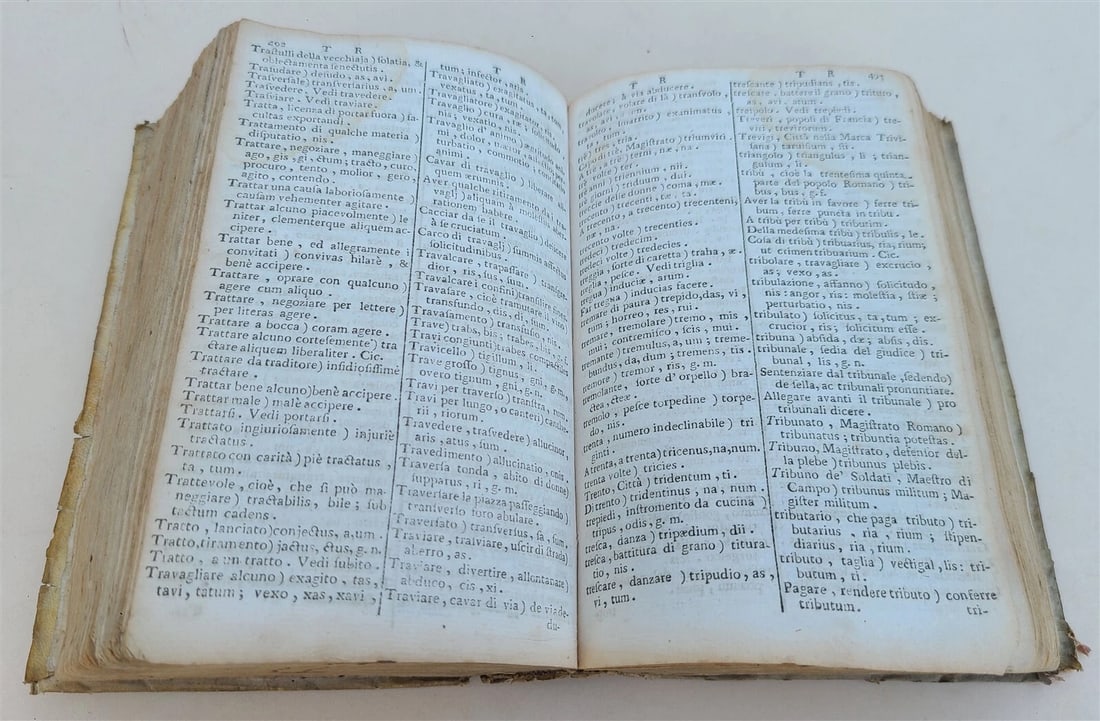 T R
Traſtulli della vecchiaja ) ſolatia, &
oblectamenta ſenectutis.
Traſudare ) deſudo, as, avi.
Traſverſale) tranſverſarius, a, um.
Traſvedere. Vedi travedere.
Traſviare. Vedi traviare.
Tratta, licenza di portar fuora ) fa-
cultas exportandi.
Trattamento di qualche materia )
diſputatio, nis.
Trattare, negoziare, maneggiare )
ago, gis, gi, ctum; tracto, curo,
procuro, tento, molior, gero,
agito, contendo.
Trattar una cauſa laborioſamente )
cauſam vehementer agitare.
Trattar alcuno piacevolmente ) le
niter, clementerque aliquem ac-
cipere.
Trattar bene, ed allegramente i
convitati ) convivas hilarè, &
benè accipere.
Trattare, oprare con qualcuno )
agere cum aliquo.
Trattare, negoziare per lettere )
per literas agere.
Trattare a bocca ) coram agere.
Trattare alcuno corteſemente ) tra
ctare aliquem liberaliter. Cic.
Trattare da traditore) inſidioſiſſimè
tractare.
Trattar bene alcuno)benè accipere.
Trattar male) malè accipere.
Trattarſi. Vedi portarſi.
Trattato ingiurioſamente ) injuriè
tractatus.
Trattato con carità) piè tractatus,
ta, tum.
Trattevole, cioè, che ſi può ma-
neggiare ) tractabilis, bile; ſub
tectum cadens.
Tratto, lanciato)conjectus, a,um.
Tratto,tiramento) jactus, ctus, g.n.
Tratto, a un tratto. Vedi ſubito.
Travagliare alcuno) exagito, tas,
tavi, tatum; vexo, xas, xavi,
T R
tum; inſector, atis.
Travagliato) exagitatus, ta, tum,
vexatus, ta, tum.
Travagliatore) exagitator, ris.
Travaglio ) cura, ræ; ſollicitudo,
nis; vexatio, nis.
Travaglio d'animo) ægritudo,
turbatio, commotio
animi.
Cavar di travaglio ) liberare
quem ærumnis.
vagli) aliquam à moleſtiis
rationem habere.
Cacciar da ſe il travaglio) dejicere
à ſe cruciatum.
Carco di travagli) ſummis affectus
ſolicitudinibus.
Travalcare, trapaſſare) tranſgre-
dior, ris, ſus, ſum.
Travalcare i confini)tranſilire fines.
Travaſare, cioè tramutare)
tranſfundo, dis, di, ſum.
Travaſamento) tranſfuſio, nis.
Trave) trabs, bis; trabes, bis, g. f.
Travi congiunti) trabes compactæ.
Travicello ) tigillum, li.
Trave groſſo) tignus, gni, g. m.
overo tignum, gni, g. n.
Travi per traverſo) tranſtra, rum.
Travi per lungo, o canteri) cante-
rii, riorum.
Travedere, traſvedere) allucinor,
aris, atus, ſum.
Travedimento) allucinatio, onis.
Traverſa tonda, abito di donne)
ſupparus, ri, g. m.
Traverſare la piazza paſſeggiando)
tranſverſo foro abulare.
Traverſato) tranſverſus, ſa, ſum.
Traviare, traſviare, uſcir di ſtrada)
aberro, as.
Traviare, divertire, allontanare)
abduco, cis, xi.
Traviare, cavar di via) de via de-
du-
T R
ducere; à via abducere.
volare di là ) tranſvolo,
as, avi, atum.
) exanimatus,
Magiſtrato) triumviri,
) terni, næ, na.
anni) triennium, nii.
giorni) triduum, dui.
treccie delle donne) coma, mæ.
trecento ) trecenti, tæ, ta.
A trecento, a trecento) trecenteni,
næ, na.
trecento volte) trecenties.
tredeci) tredecim.
tredeci volte) tredecies.
treggia, ſorte di caretta) traha, æ.
treglia, peſce. Vedi triglia.
tregua) induciæ, arum.
Far tregua) inducias facere.
tremar di paura) trepido,das, vi,
tum; horreo, res, rui.
tremare, tremolare) tremo, mis,
mui; contremiſco, ſcis, mui.
tremante) tremulus, a, um; treme-
bundus, da, dum; tremens, tis.
tremore) tremor, ris, g. m.
tremolante, ſorte d'orpello) bra-
ctea, cteæ.
tremolo, peſce torpedine) torpe-
do, nis.
trenta, numero indeclinabile) tri
ginti.
A trenta, a trenta) tricenus,na,num.
trenta volte) tricies.
Trento, Città) tridentum, ti.
Di trento) tridentinus, na, num.
trepiedi, inſtromento da cucina)
tripus, odis, g. m.
treſca, danza) tripædium, dii.
treſca, battitura di grano) titura-
tio, nis.
treſcare, danzare ) tripudio, as,
vi, tum.
T R
treſcante) tripudians, tis.
treſcare, battere il grano) trituro,
as, avi, atum.
trepolo. Vedi trepiedi.
Treveri, popoli di Francia) tre-
viri, trevirorum.
Trevigi, Città nella Marca Trivi-
ſana) tarviſium, ſii.
triangolo) triangulus, li; trian-
gulum, li.
tribù, cioè la trenteſima quinta
parte del popolo Romano) tri-
bus, bus, g. f.
Aver la tribù in favore) ferre tri-
bum, ferre puncta in tribu.
A tribù per tribù) tributim.
Della medeſima tribù) tribulis, le.
Coſa di tribù) tribuarius, ria, rium;
ut crimen tribuarium. Cic.
tribolare, travagliare) excrucio,
as; vexo, as.
tribulazione, affanno) ſolicitudo,
nis: angor, ris: moleſtia, ſtiæ;
perturbatio, nis.
tribulato) ſolicitus, ta, tum; ex-
crucior, ris; ſolicitum eſſe.
tribuna) abſida, dæ; abſis, dis.
tribunale, ſedia del giudice) tri-
bunal, lis, g. n.
Sentenziare dal tribunale, ſedendo)
de ſella, ac tribunali pronuntiare.
Allegare avanti il tribunale) pro
tribunali dicere.
Tribunato, Magiſtrato Romano)
tribunatus; tribuntia poteſtas.
Tribuno, Magiſtrato, defenſor del-
la plebe) tribunus plebis.
Tribuno de' Soldati, Maeſtro di
Campo) tribunus militum; Ma-
giſter militum.
tributario, che paga tributo) tri-
butarius, ria, rium; ſtipen-
diarius, ria, rium.
tributo, taglia) vectigal, lis: tri-
butum, ti.
Pagare, rendere tributo) conferre
tributum.
tri-